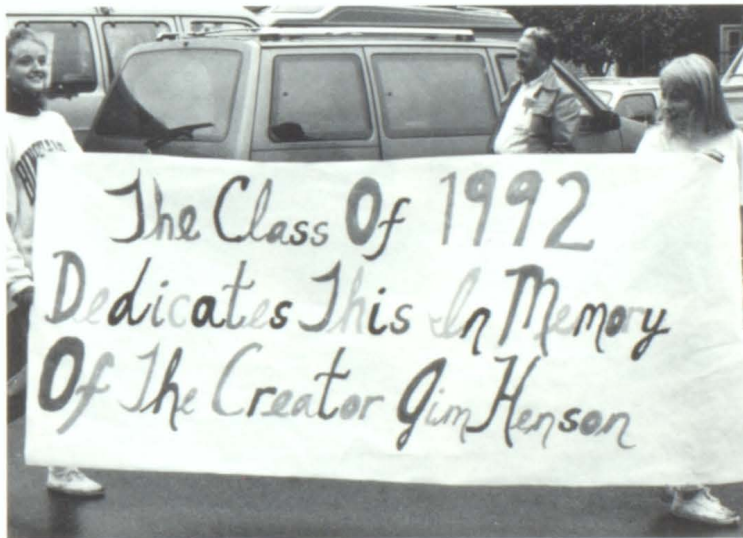 The Class Of 1992
Dedicates This In Memory
Of The Creator Jim Henson